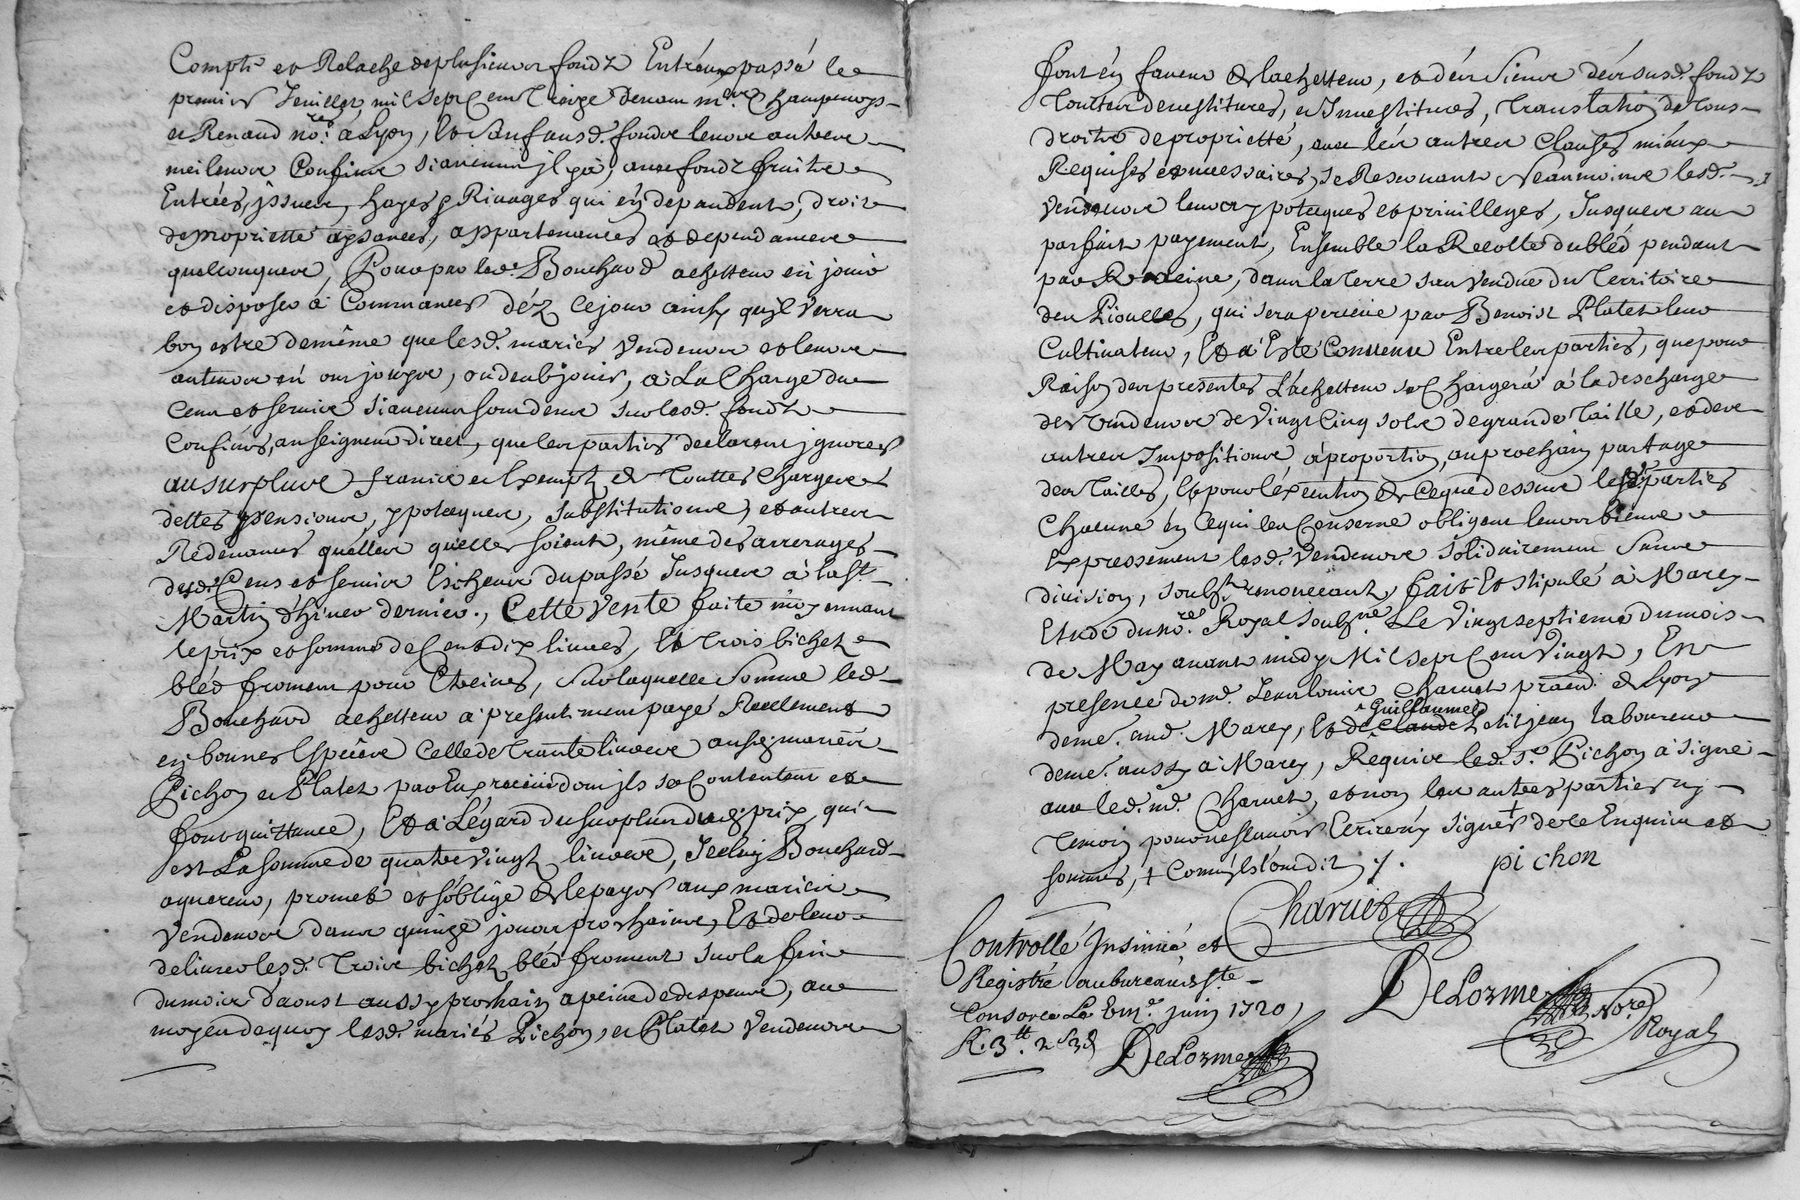 Compte et Relache de plusieurs fondz Entréeux passé le
premier Jeuillet mil sept Cent Treize devant me. Champenoys
et Renaud nores. à Lyon, Et sauf ausd. fondz leurs autres
meilleurs Confins s'aucuns jl y à, avec fondz fruitz
Entrées, jssues, hayes, Rivages qui en depandent, droitz
de proprietté aysances, appartenances et dependances
quelconques, Pour par led. Bouchard achetteur en jouir
et disposer à Commancer déz ce jour ainsy qu'jl verra
bon estre de même que lesd. mariés vendeurs et leurs
autheurs en ont jouys, ou deub jouir, à La Charge du
Cens et service s'aucuns sont deus sur lesd. fondz
Confinés, au seigneur direct, que les parties declarent jgnorer
au surplus francs et Exempt de Touttes Charges
dettes pensions, ypoteques, substitutions, et autres
Redevances quelles quelles soient, même des arrerages
desd. Cens et service Escheus du passé Jusques à la st.
Martin d'hiver dernier., Cette vente faite moyennant
le prix et somme de Cent dix livres, Et Trois bichetz
bléd froment pour Etreines, sur laquelle somme led.
Bouchard achetteur à presentement payé Reellement
en bonnes Espèces Celle de Trante livres ausd. mariés
Pichon et Platet par Eux receüe dont jls se Contentent et
font quittance, Et à L'égard du surplus dud. prix, qui
est La somme de quatre vingt livres, Jceluy Bouchard
aquereur, promet et s'oblige de le payer aux mariés
vendeurs dans quinze jours prochains, Et de leur
delivrer lesd. Trois bichetz bléd froment sur la fin
du mois d'aoust aussy prochain a peine de despens, au
moyen de quoy lesd. mariés Pichon, et Platet vendeurs
font en faveur de l'achetteur, et des siens desd. fondz
Touttes devestitures, et Jnvestitures, Translation de tous
droitz de proprietté, avec les autres Clauses mieux
Requises et necessaires, se Reservants Neanmoins lesd.
vendeurs leurs ypoteques et privilleges, Jusques au
parfait payement, Ensemble la Recolte du bléd pendant
par Racine, dans la Terre sus vendue du Territoire
des, qui sera percüe par Benoist Platet leur
Cultivateur, Et à Esté Convenu Entre les parties, que pour
Raison des presentes L'achetteur se Chargera à la descharge
des vendeurs de vingt Cinq sols de grande Taille, et des
autres Jmpositions à proportion, au prochain partage
des Tailles, Et pour l'éxecution de ce que dessus lesd. parties
Chacune en ce qui les Conserne obligent leurs biens
Expressement lesd. vendeurs solidairement sans
division, soubz. renonceant, Fait Et stipulé à Marcy
Etude du nore. Royal soubzné. Le vingt septieme du mois
de May avant midy Mil sept Cent vingt, En
presence de md. Jean louis Charvet prad. de Lyon
demt. aud. Marcy, Et de Guillaume petitjean laboureur
demt. aussy à Marcy, Requis led. sr. Pichon à signé
avec led. md. Charvet, et non les autres parties ny
Temoin pour ne sçavoir Ecrire ny signer + de ce Enquis et
sommés, + Comm'jls ont dit /.
pichon
Charvet
Controllé Jnsinué et
Registré au bureau de ste.
Consorce Le juin 1720,
R. 3 tt. 2 s 3 d
Delorme
Delorme
Nore.
Royal